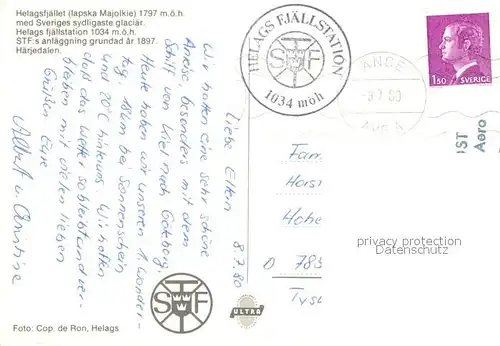 Helagsfjället (lapska Majolkie) 1797 m.ö.h.
med Sveriges sydligaste glaciär.
Helags fjällstation 1034 m.ö.h.
STF:s anläggning grundad år 1897.
Härjedalen.
HELAGS FJÄLLSTATION
STF
1034 möh
ANGE
-9.7.80
1 50 SVERIGE
Aero
8.7.80
Liebe Eltern
Wir hatten eine sehr schöne
Anreise, besonders mit dem
Schiff von Kiel nach Göteborg.
Heute haben wir unseren 1. Wander-
tag, 18km bei Sonnenschein
und 20°C hinter uns. Wir hoffen
daß das Wetter so bleibt und ver-
bleiben mit vielen lieben
Grüßen Eure
Albert u. Christine
Fam
Hans
Hohe
D 785
privacy protection
Datenschutz
STF
ULTAB
Foto: Cop. de Ron, Helags